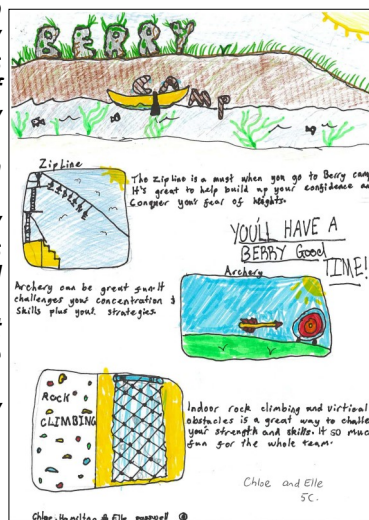 BERRY
CAMP
Zip Line
The Zip line is a must when you go to Berry camp
It's great to help build up your confidence an
Conquer your fear of heights.
YOU'LL HAVE A
BERRY Good
TIME!
Archery
Archery can be great fun. It
challenges your concentration &
skills plus your strategies.
ROCK
CLIMBING
Indoor rock climbing and virtical
obstacles is a great way to challe
your strength and skills. It so much
fun for the whole team.
Chloe and Elle
5C.
Chloe. Hamilton & Elle